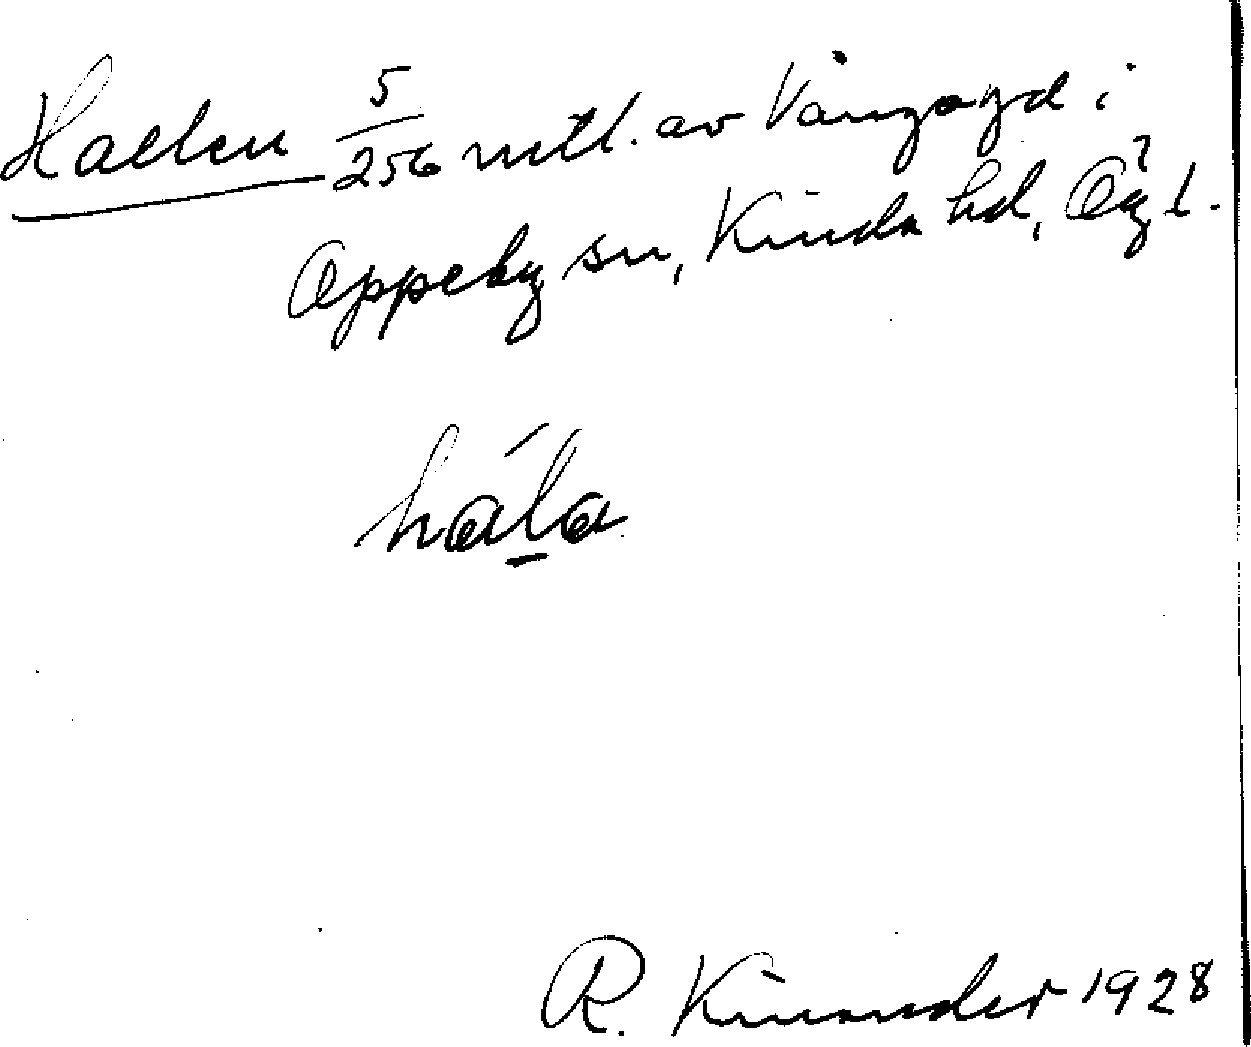 Hallen 5/256 mtl. av Vångagxd i
Oppeby sn, Kinda hd, Ög l.
hála
R. Kinander 1928